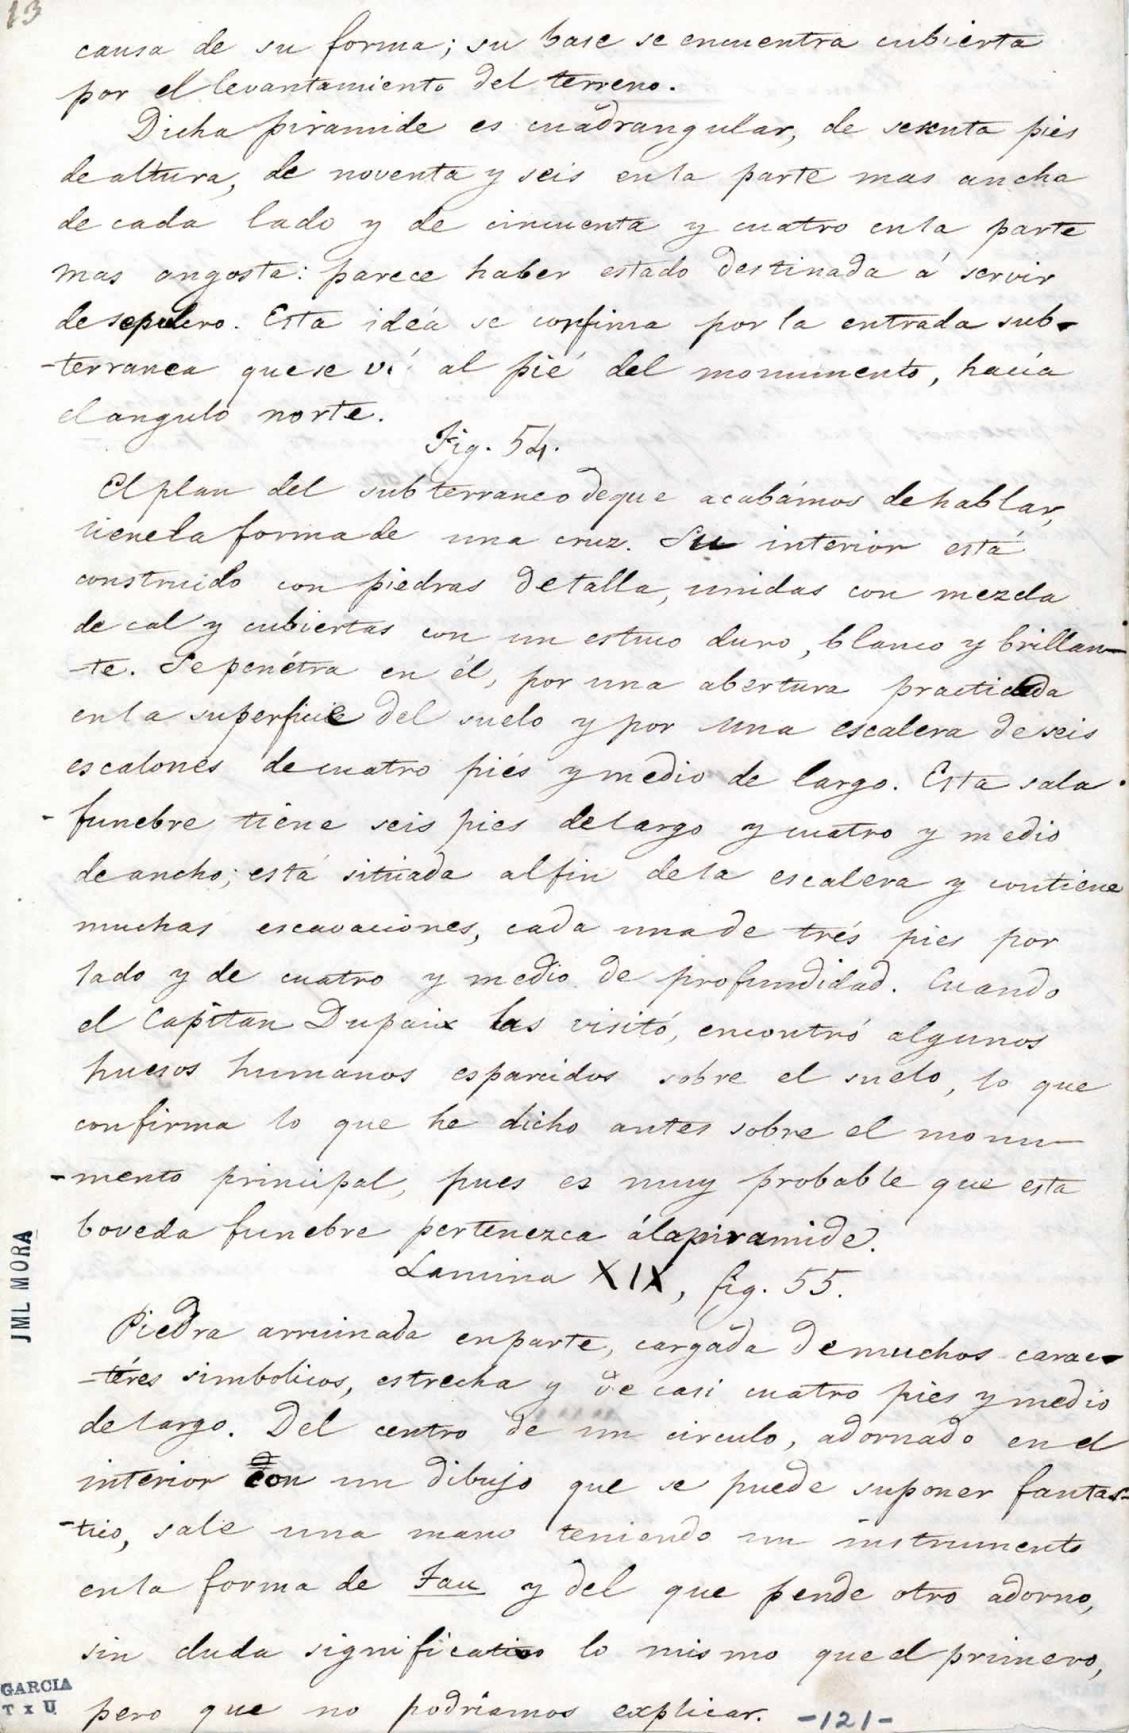 13
causa de su forma; su base se encuentra cubierta
por el levantamiento del terreno.
Dicha piramide es cuadrangular, de sesenta pies
de altura, de noventa y seis en la parte mas ancha
de cada lado y de cincuenta y cuatro en la parte
mas angosta: parece haber estado destinada á servir
de sepulcro. Esta idea se confirma por la entrada sub-
-terranea que se vé al pié del monumento, hacia
el angulo norte.
Fig. 54.
El plan del subterraneo de que acabámos de hablar,
tiene la forma de una cruz. Su interior está
construido con piedras de talla, unidas con mezcla
de cal y cubiertas con un estuco duro, blanco y brillan-
-te. Se penétra en él, por una abertura practicada
en la superficie del suelo y por una escalera de seis
escalones de cuatro piés y medio de largo. Esta sala
funebre tiene seis pies de largo y cuatro y medio
de ancho; está situada al fin de la escalera y contiene
muchas escavaciones, cada una de trés pies por
lado y de cuatro y medio de profundidad. Cuando
el Capitan Dupaix las visitó, encontró algunos
huesos humanos esparcidos sobre el suelo, lo que
confirma lo que he dicho antes sobre el monu-
-mento principal, pues es muy probable que esta
boveda funebre pertenezca á la piramide.
Lamina XIX, fig. 55.
Piedra arruinada en parte, cargada de muchos carac-
-téres simbolicos, estrecha y de casi cuatro pies y medio
de largo. Del centro de un circulo, adornado en el
interior con un dibujo que se puede suponer fantas-
-tico, sale una mano teniendo un instrumento
en la forma de Tau y del que pende otro adorno,
sin duda significativo lo mismo que el primero,
pero que no podriamos explicar. -121-
JML MORA
GARCIA
T x U